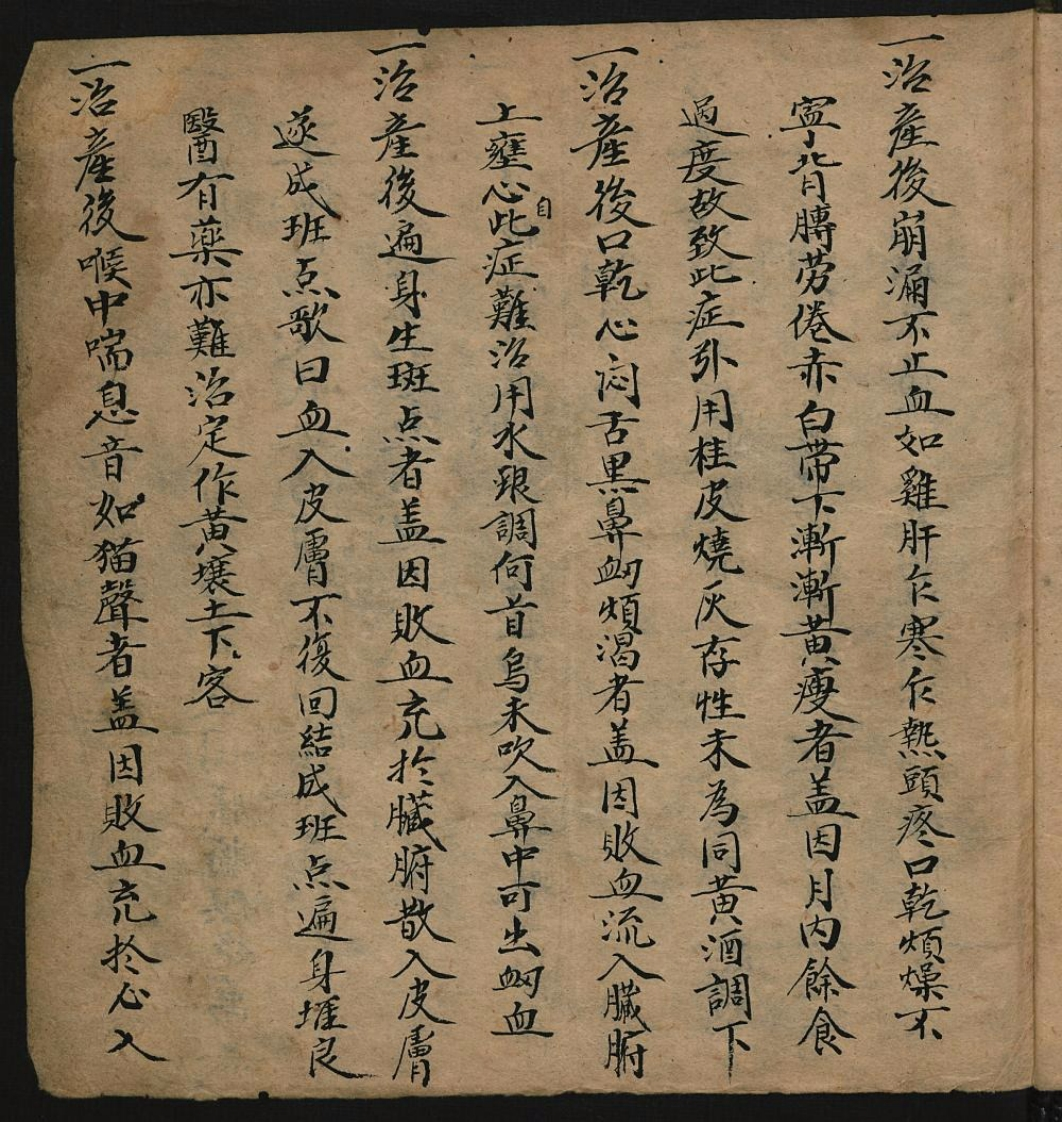 一治產後崩漏不止血如雞肝乍寒乍熱頭疼口乾煩燥不
寧背膊劳倦赤白带下漸漸黄瘦者盖因月内餘食
過度故致此症引用桂皮燒灰存性末為同黄酒調下
一治產後口乾心闷舌黒鼻衂煩渴者盖因敗血流入臟腑
上壅心自此症難治用水銀調何首烏末吹入鼻中可出衂血
一治產後遍身生斑点者盖因敗血充扵臟腑散入皮膚
遂成班点歌曰血入皮膚不復回結成班点遍身堆良
醫有薬亦難治定作黄壤土下客
一治產後喉中喘息音如猫聲者盖因敗血充扵心入